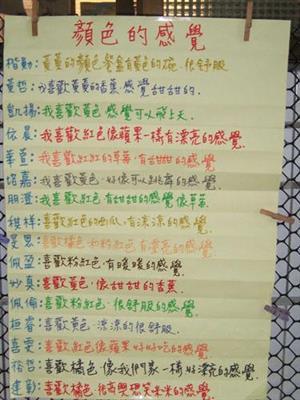 顏色的感覺
楷勳:黃黃的顏色餐盒有黃色的碗,很舒服
黃哲:喜歡黃黃的香蕉,感覺甜甜的
凱揚:我喜歡黃色感覺可以飛上天
依晨:我喜歡紅色像蘋果一樣有漂亮的感覺
華萱:我喜歡紅紅的草莓,有甜甜的感覺
禎嘉:我喜歡黃色,好像可以跳舞的感覺
朋澄:我喜歡紅色有甜甜的感覺像草莓
祺祥:喜歡紅色的西瓜,有涼涼的感覺
旻恩:喜歡橘色和粉紅色有漂亮的感覺
佩盈:喜歡粉紅色,有暖暖的感覺
妙真:喜歡黃色,像甜甜的香蕉
佩倫:喜歡粉紅色,很舒服的感覺
桓睿:喜歡黃色,涼涼的很舒服
喜雯:喜歡紅色像蘋果好好吃的感覺
裕哲:喜歡橘色像我們家一樣好漂亮的感覺
建勳:喜歡橘色,很高興想笑咪咪的感覺